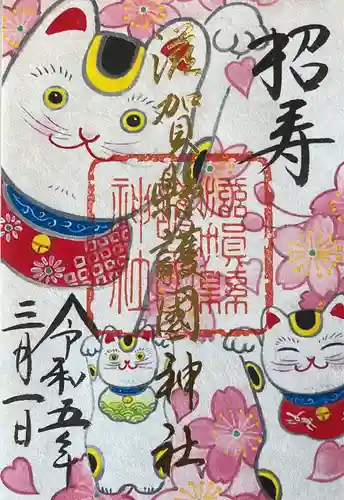 招寿
滋賀縣護國神社
滋賀縣護國神社
令和五年
三月一日